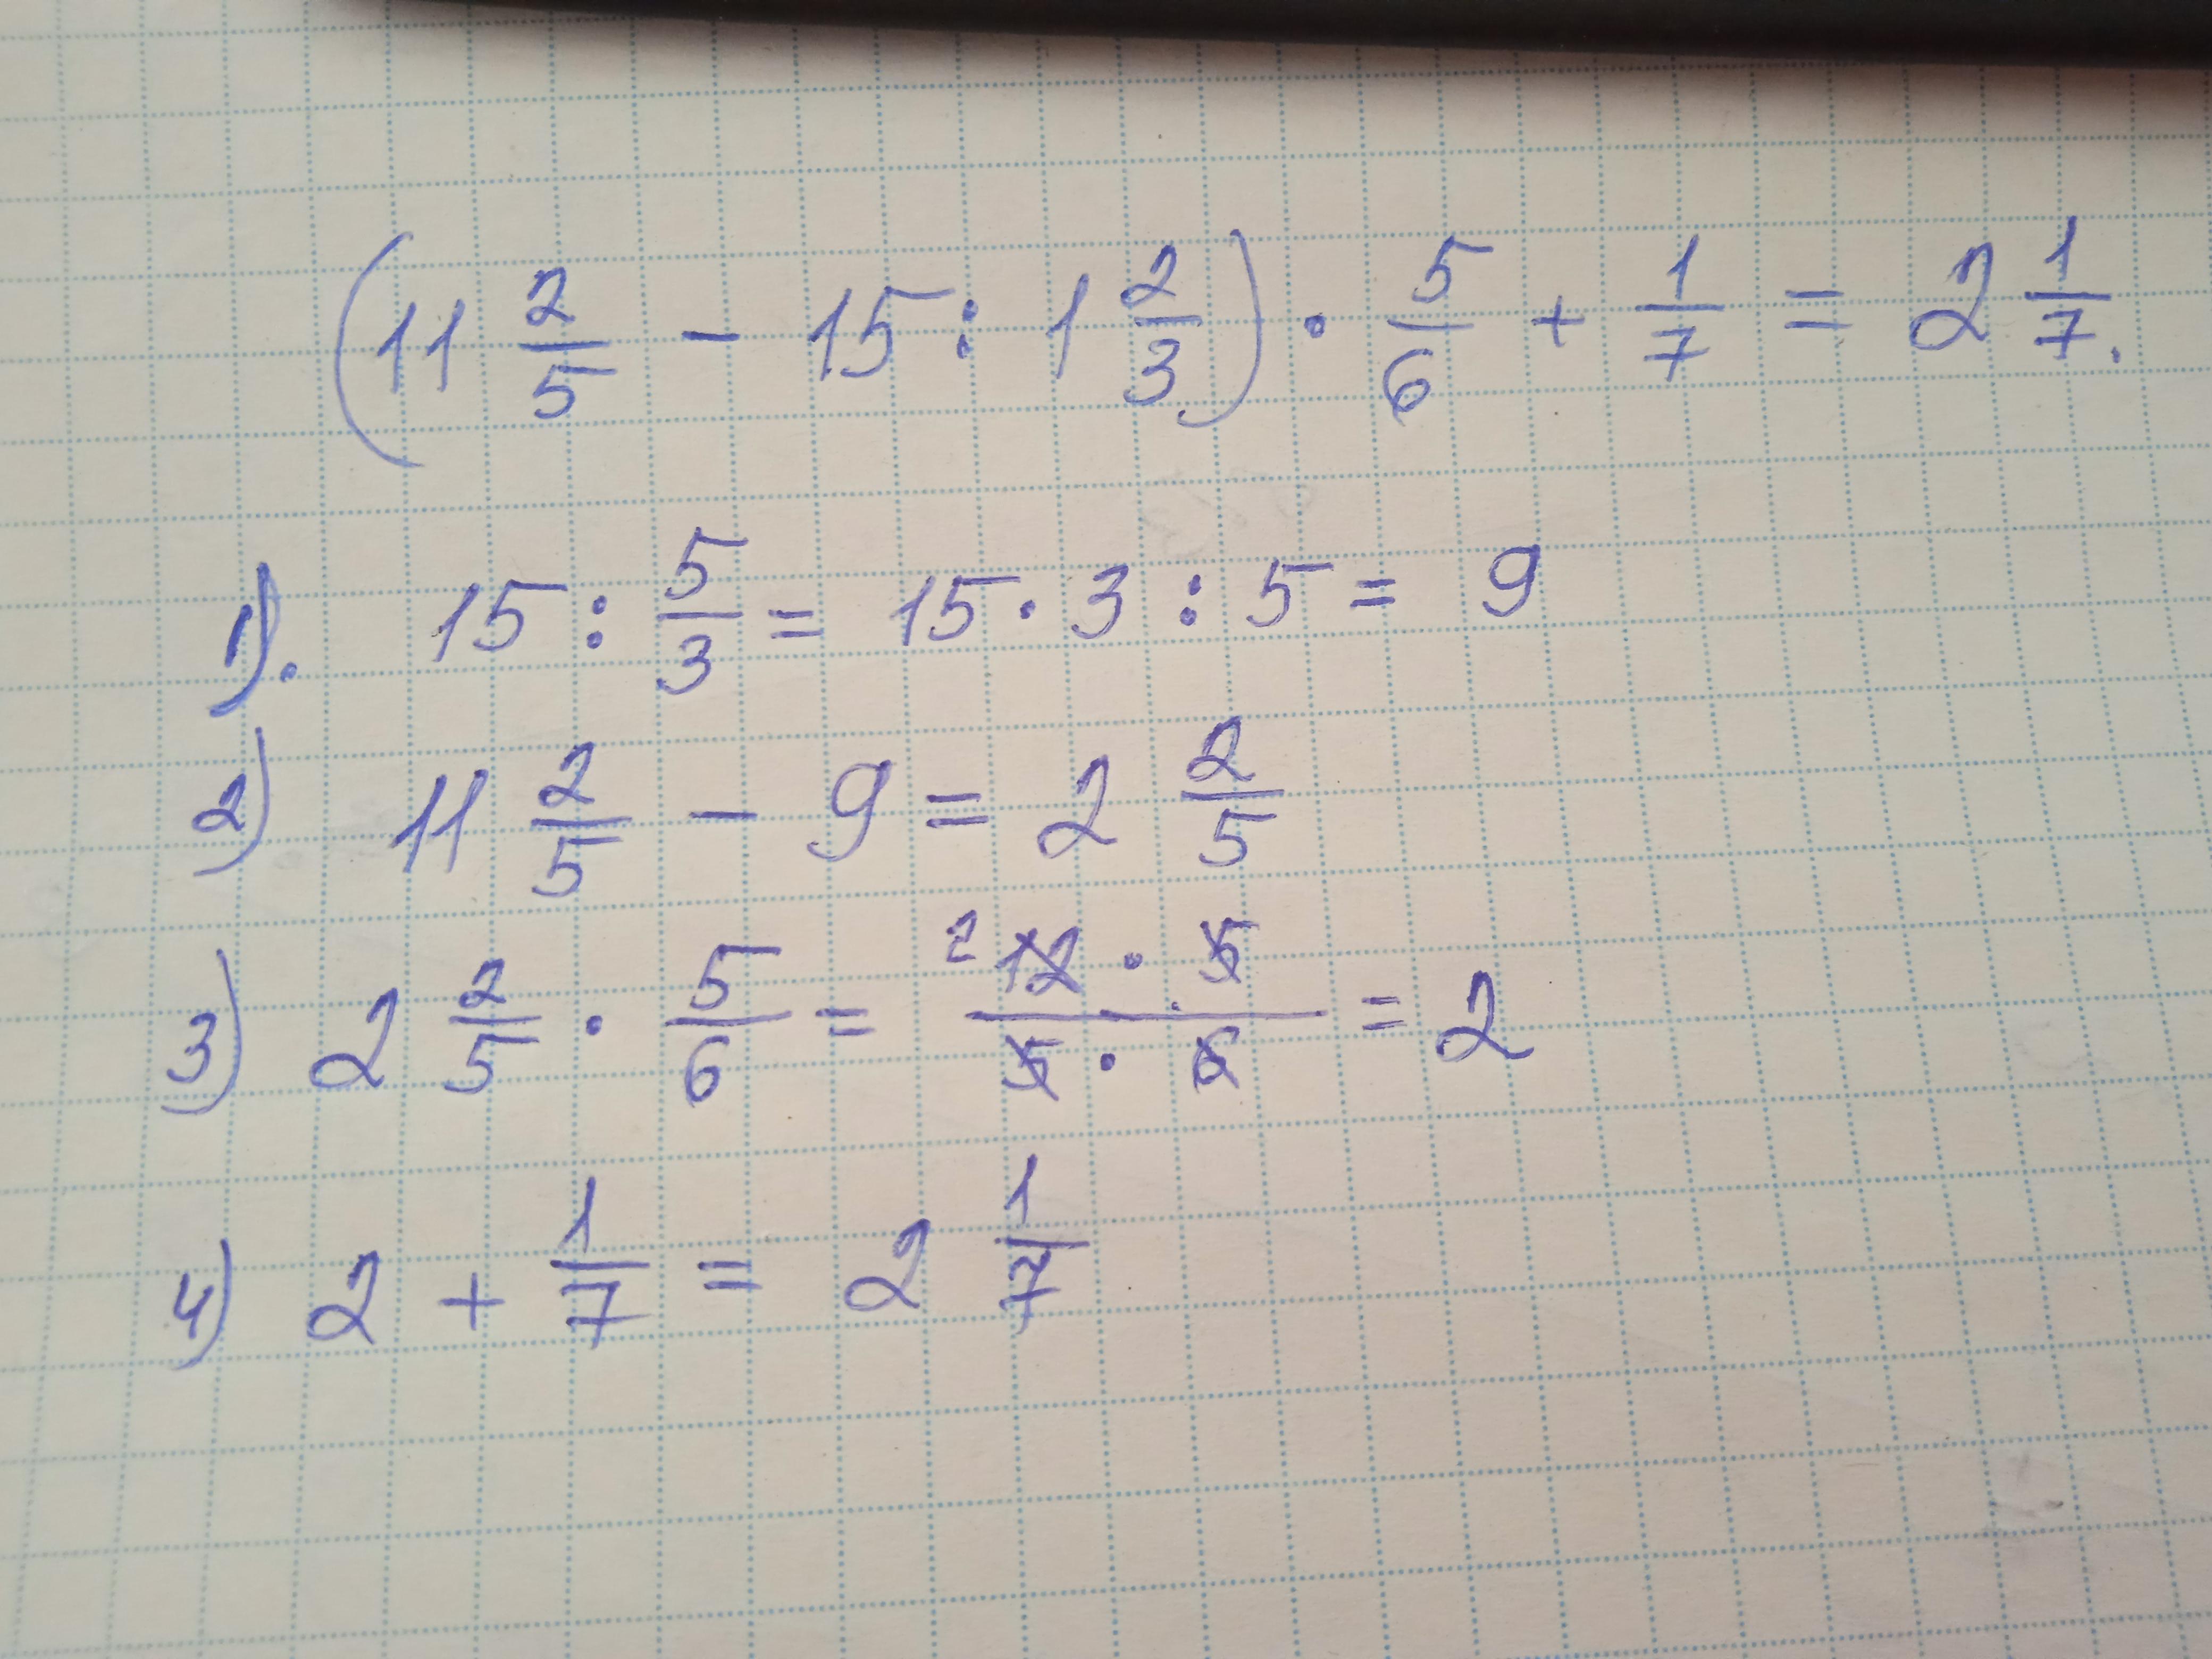 (11 2/5 - 15 : 1 2/3) · 5/6 + 1/7 = 2 1/7.
1). 15 : 5/3 = 15 · 3 : 5 = 9
2) 11 2/5 - 9 = 2 2/5
3) 2 2/5 · 5/6 = 2 12 · 5 / 5 · 6 = 2
4) 2 + 1/7 = 2 1/7